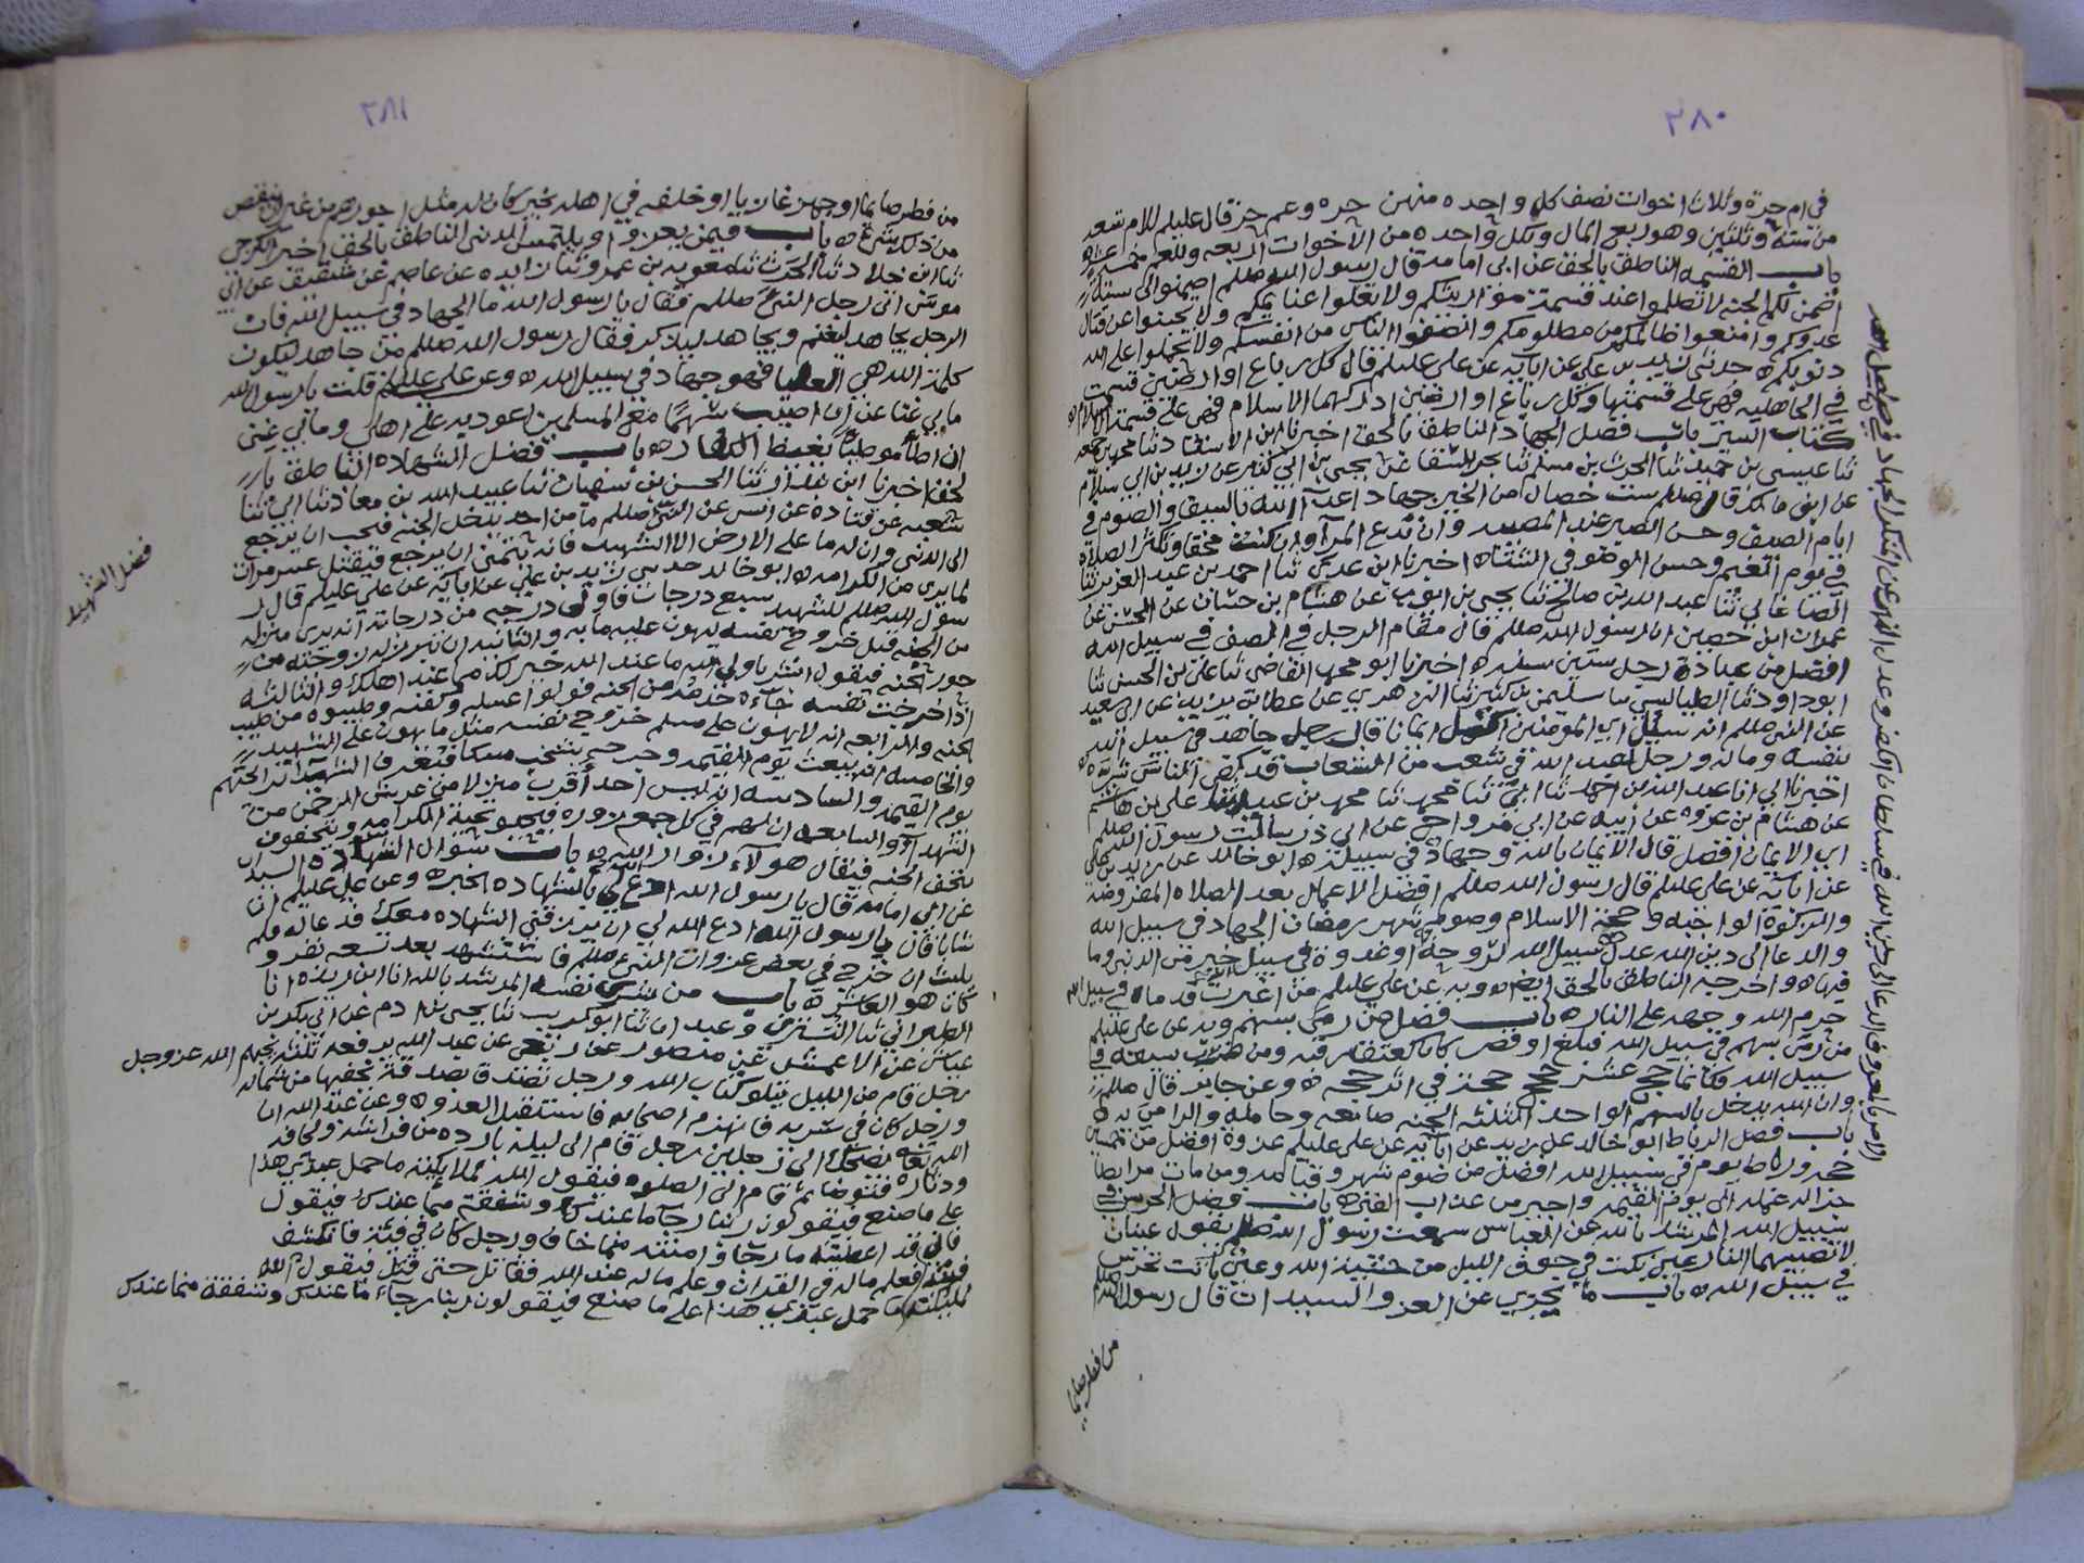 ٢٨٠
في ام حرة وثلاث اخوات نصف كل واحده منهن حره وعم حر قال عليلم للام تسعه
من ستة وثلثين وهو ربع المال ولكل واحده من الاخوات
باب القسمه الناطق بالحق عن ابي امامه قال رسول الله صللم اضمنوا لي ست
اضمن لكم الجنه لا تظلموا عند قسمة مواريثكم ولا تغلوا غنايمكم ولا تجبنوا عن قتال
عدوكم وامنعوا ظالمكم من مظلومكم وانصفوا الناس من انفسكم ولا تحملوا على الله
ذنوبكم ه حدثني زيد بن علي عن ابايه عن علي عليلم قال كل رباع او ارضين قسمت
في الجاهليه فهي على قسمتها وكل رباع او ارضين ادركها الاسلام فهي على قسمة الاسلام ه
كتاب السير باب فضل الجهاد الناطق بالحق اخبرنا
ثنا عيسى بن حميد ثنا الحرث بن مسلم ثنا بحر السقا عن يحيى بن ابي كثير عن زيد بن ابي سلام
عن ابي مالك قال صللم ست خصال من الخير جهاد اعداء الله بالسيف والصوم في
ايام الصيف وحسن الصبر عند المصيبه وان تدع المرآ وان كنت محقا وتبكر الصلاة
في يوم الغيم وحسن الوضو في الشتاه اخبرنا ابن عدي ثنا احمد بن عبد العزيز ثنا
عبد الله بن صالح ثنا يحيى بن ايوب عن هشام بن حسان عن الحسن عن
عمران ابن حصين ان رسول الله صللم قال مقام الرجل في الصف في سبيل الله
افضل من عبادة رجل ستين سنه ه اخبرنا ابو محمد القاضي ثنا علي بن الحسن ثنا
ابو داود ثنا الطيالسي ثنا سليمن بن كثير ثنا الزهري عن عطا بن يزيد عن ابي سعيد
عن النبي صللم انه سيل اي المومنين اكمل ايمانا قال رجل جاهد في سبيل الله
بنفسه وماله ورجل يعبد الله في شعب من الشعاب قد كفى الناس شره ه
اخبرنا ابي انا عبد الله بن احمد ثنا ابي ثنا محمد ثنا محمد بن عبد الله ثنا علي بن هاشم
عن هشام بن عروه عن ابيه عن ابي مرواح عن ابي ذر سالت رسول الله صللم
اي الايمان افضل قال الايمان بالله وجهاد في سبيله ه ابو خالد عن زيد بن علي
عن ابايه عن علي عليلم قال رسول الله صللم افضل الاعمال بعد الصلاه المفروضه
والزكوة الواجبه وحجة الاسلام وصوم شهر رمضان الجهاد في سبيل الله
والدعا الى دين الله عدل سبيل الله لروحة او غدوة في سبيل الله خير من الدنيا وما
فيها ه واخرجه الناطق بالحق ايضا ه وبه عن علي عليلم من اغبرت قدماه في سبيل الله
حرم الله وجهه على النار ه باب فضل من رمى بسهم وبه عن علي عليلم
من رمى بسهم في سبيل الله فبلغ او قصر كان كعتق رقبه ومن ضرب بسيفه في
سبيل الله فكانما حج عشر حجج حجة في اثر حجه ه وعن جابر قال صللم
وان الله يدخل بالسهم الواحد الثلثه الجنه صانعه وحامله والرامي به ه
باب فضل الرباط ابو خالد عن زيد عن ابايه عن علي عليلم غزوة افضل من خمسين
حجه ورباط يوم في سبيل الله افضل من صوم شهر وقيامه ومن مات مرابطا
جرا له عمله الى يوم القيمه واجير من عذاب القبر ه باب فضل الحرس في
سبيل الله المرشد بالله عن العباس سمعت رسول الله صللم يقول عينان
لا تصيبهما النار عين بكت في جوف الليل من خشية الله وعين باتت تحرس
في سبيل الله ه باب ما يجزي عن الغزو السيدان قال رسول الله صللم
من فطر صايما
الامر بالمعروف
٢٨١
من فطر صايما او جهز غازيا او خلفه في اهله بخير كان له مثل اجورهم من غير ان ينقص
من ذلك شيء ه باب فيمن يغزوا ويلتمس الدنيا الناطق بالحق اخبرنا
ثنا ابن خلاد ثنا الحرث ثنا معويه بن عمرو ثنا زايده عن عاصم عن شقيق عن ابي
موسى اتى رجل النبي صللم فقال يا رسول الله ما الجهاد في سبيل الله فان
الرجل يجاهد ليغنم ويجاهد ليذكر فقال رسول الله صللم من جاهد ليكون
كلمة الله هي العليا فهو جهاد في سبيل الله ه وعن علي عليلم قلت يا رسول الله
ما بي غنا عن ان اصيب سهما مع المسلمين اعود به على اهلي وما بي غنى
ان اطأ موطيا يغيظ الكفار ه باب فضل الشهاده الناطق با
لحق اخبرنا ابن ثنا الحسن بن سفيان ثنا عبيد الله بن معاذ ثنا ابي ثنا
شعبه عن قتاده عن انس عن النبي صللم ما من احد يدخل الجنه فيحب ان يرجع
الى الدنيا وان له ما على الارض الا الشهيد فانه يتمنى ان يرجع فيقتل عشر مرات
لما يرى من الكرامه ه ابو خالد حدثني زيد بن علي عن ابايه عن علي عليلم قال ر
سول الله صللم للشهيد سبع درجات فاولى درجه من درجاته ان يرى منزله
من الجنه قبل خروج نفسه ليهون عليه ما به والثانيه ان تبرز له زوجته من
حور الجنه فيقول ابشر يا ولي الله ما عند الله خير لك مما عند اهلك والثالثه
اذا خرجت نفسه جآه خدمه من الجنه فولوا غسله وكفنه وطيبوه من طيب
الجنه والرابعه انه لا يهون على مسلم خروج نفسه مثل ما يهون على الشهيد
والخامسه انه يبعث يوم القيمه وجرحه يشخب مسكا فتعرف الشهدآ برايحتهم
يوم القيمه والسادسه انه ليس احد اقرب منزلا من عرش الرحمن من
الشهدآ والسابعه ان لهم في كل جمعه زوره فيحيون بتحية الكرامه ويتحفون
بتحف الجنه فيقال هولآ زوار الله ه باب سوال الشهاده السيدان
عن ابي امامه قال يا رسول الله ادع لي بالشهاده الخبره وعن علي عليلم ان
شابا قال يا رسول الله ادع الله لي ان يرزقني الشهاده معك فدعا له فلم
يلبث ان خرج في بعض غزوات النبي صللم فاستشهد بعد تسعه نفر و
كان هو العاشر ه باب من شرى نفسه المرشد بالله انا ابن ريذه انا
الطبراني ثنا وعبدان ثنا ابو كريب ثنا يحيى بن ادم عن ابي بكر بن
عياش عن الاعمش عن منصور عن ربعي عن عبد الله يرفعه ثلثه يحبهم الله عز وجل
رجل قام من الليل يتلو كتاب الله ورجل تصدق بصدقة يخفيها من شماله
ورجل كان في سريه فانهزم اصحابه فاستقبل العدو ه وعن عبد الله ان
الله تعالى يضحك الى رجلين رجل قام الى ليلة بارده من فراشه ولحافه
ودثاره فتوضا ثم قام الى الصلوه فيقول الله لملايكته ما حمل عبدي هذا
على ما صنع فيقولون ربنا رجآ ما عندك وشفقة مما عندك فيقول
فاني قد اعطيته ما رجا وامنته مما خاف ورجل كان في فئة فانكشف
فئته فعلم ماله في الفرار وعلم ماله عند الله فقاتل حتى قتل فيقول الله
لملايكته ما حمل عبدي هذا على ما صنع فيقولون ربنا رجآ ما عندك وشفقة مما عندك
فضل الشهيد